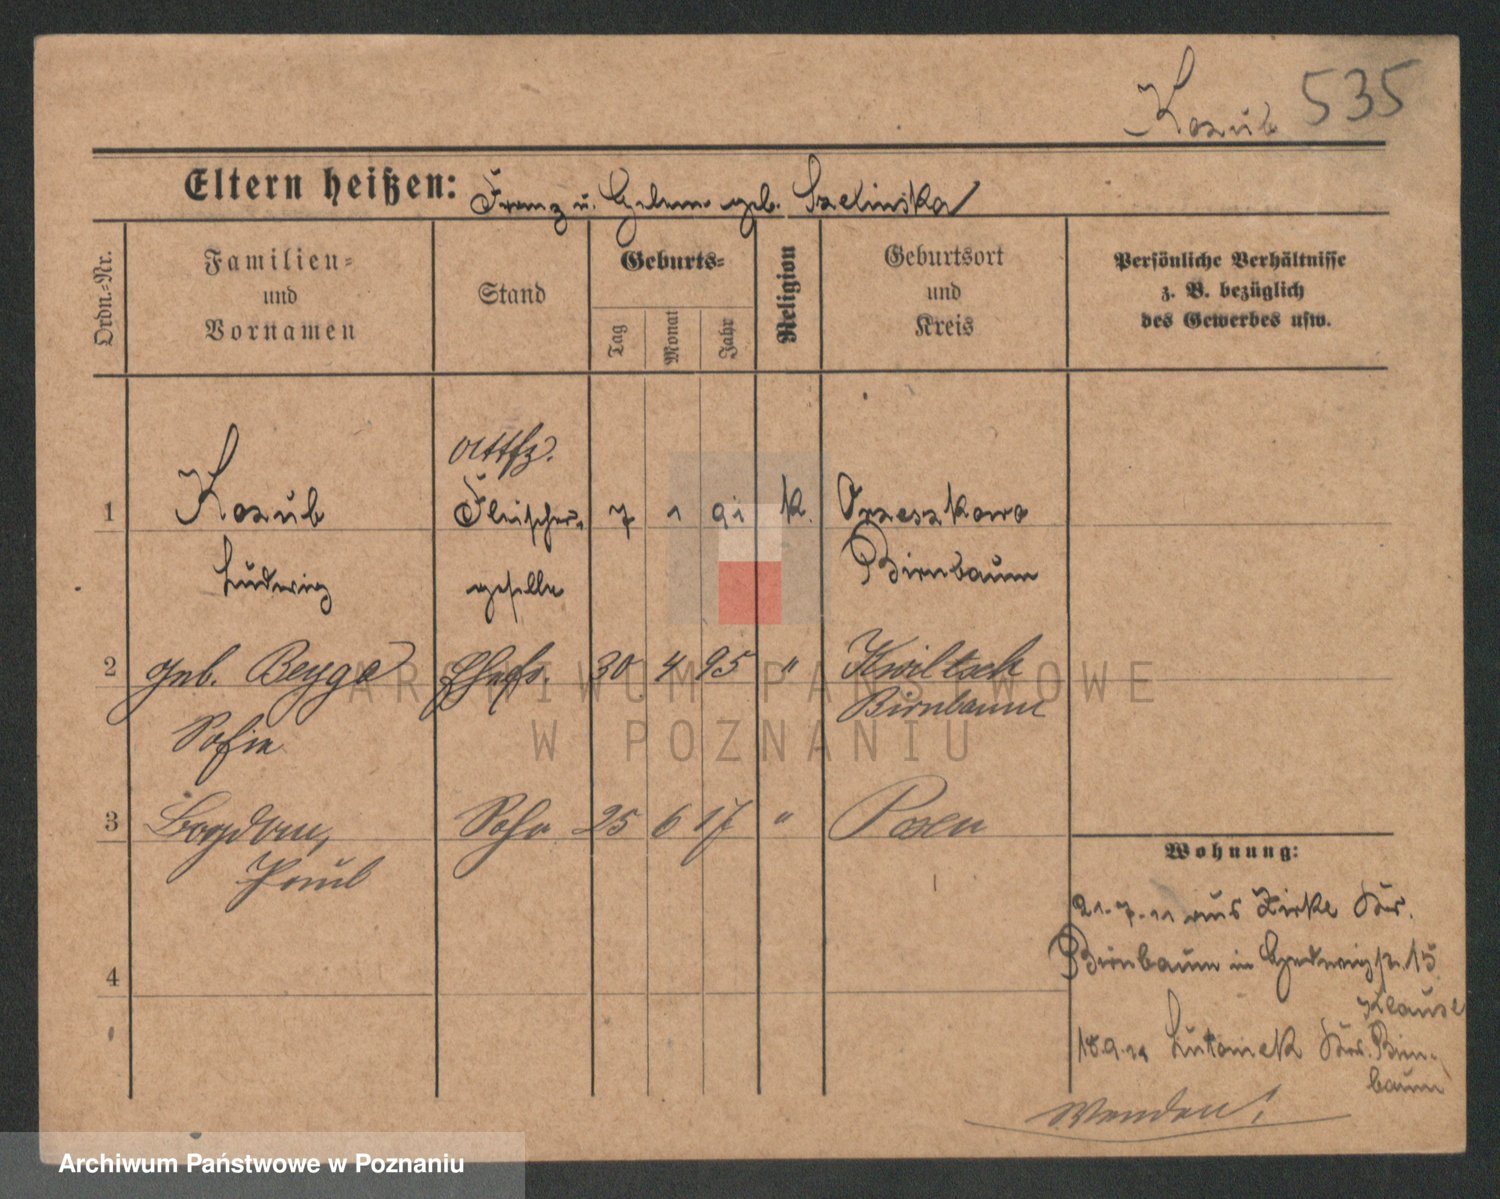 Kozub 535
Eltern heißen: Franz u. Helene geb. Szelinska
Ordn.-Nr.
Familien-
und
Vornamen
Stand
Geburts-
Tag
Monat
Jahr
Religion
Geburtsort
und
Kreis
Persönliche Verhältnisse
z. B. bezüglich
des Gewerbes usw.
1 Kozub Fleischer- 7 1 91 k. Orzeszkowo
Ludwig geselle Birnbaum
2 geb. Beyga Ehefr. 30 4 95 " Kwiltsch
Sofie Birnbaum
3 Bogdan, Sohn 25 6 17 " Posen
Paul
4
Wohnung:
21.7.11 aus Zirke Kr.
Birnbaum in Hedwigstr. 15
Klause
18.9.11 Lutomek Kr. Birn-
baum
Wenden!
ARCHIWUM PAŃSTWOWE
W POZNANIU
Archiwum Państwowe w Poznaniu